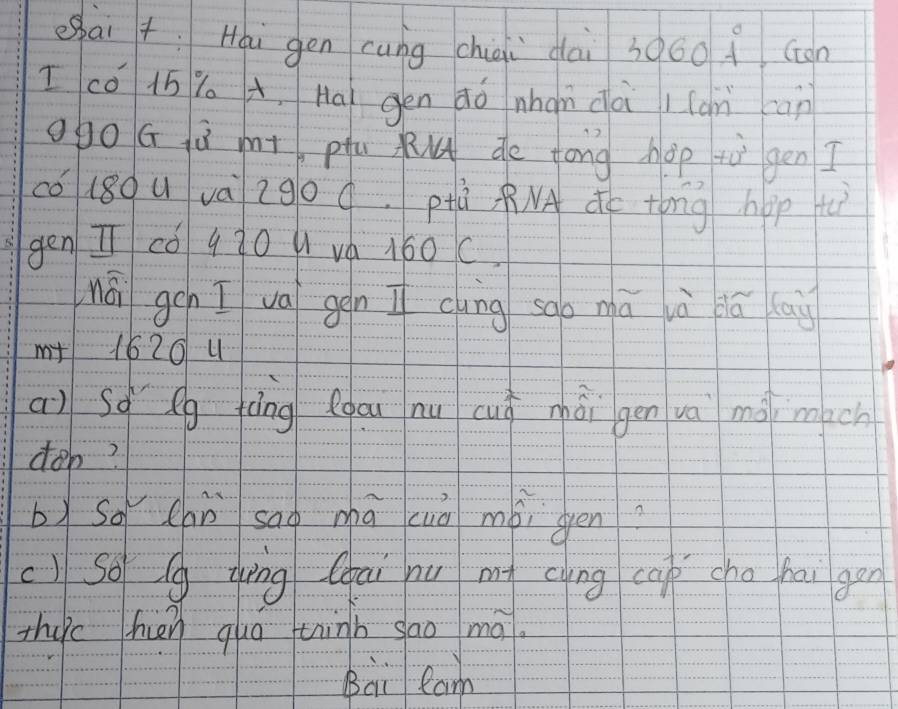 Bài 7: Hai gen cùng chiều dài 3060 Å, Gen
I có 15% A. Hai gen đó nhân đôi 1 lần cần
990 G từ mt, ptu RNA đc tổng hợp từ gen I
có 180 U và 290 C. ptử RNA đc tổng hợp từ
gen II có 420 U và 160 C.
Mỗi gen I và gen II cùng sao mã và đã lấy
mt 1620 U
a) Số lg từng loại nu cuả mỗi gen và mỗi mạch
đơn?
b) Số lần sao mã của mỗi gen?
c) Số lg từng loại nu mt cung cấp cho hai gen
thực hiện quá trình sao mã.
Bài làm